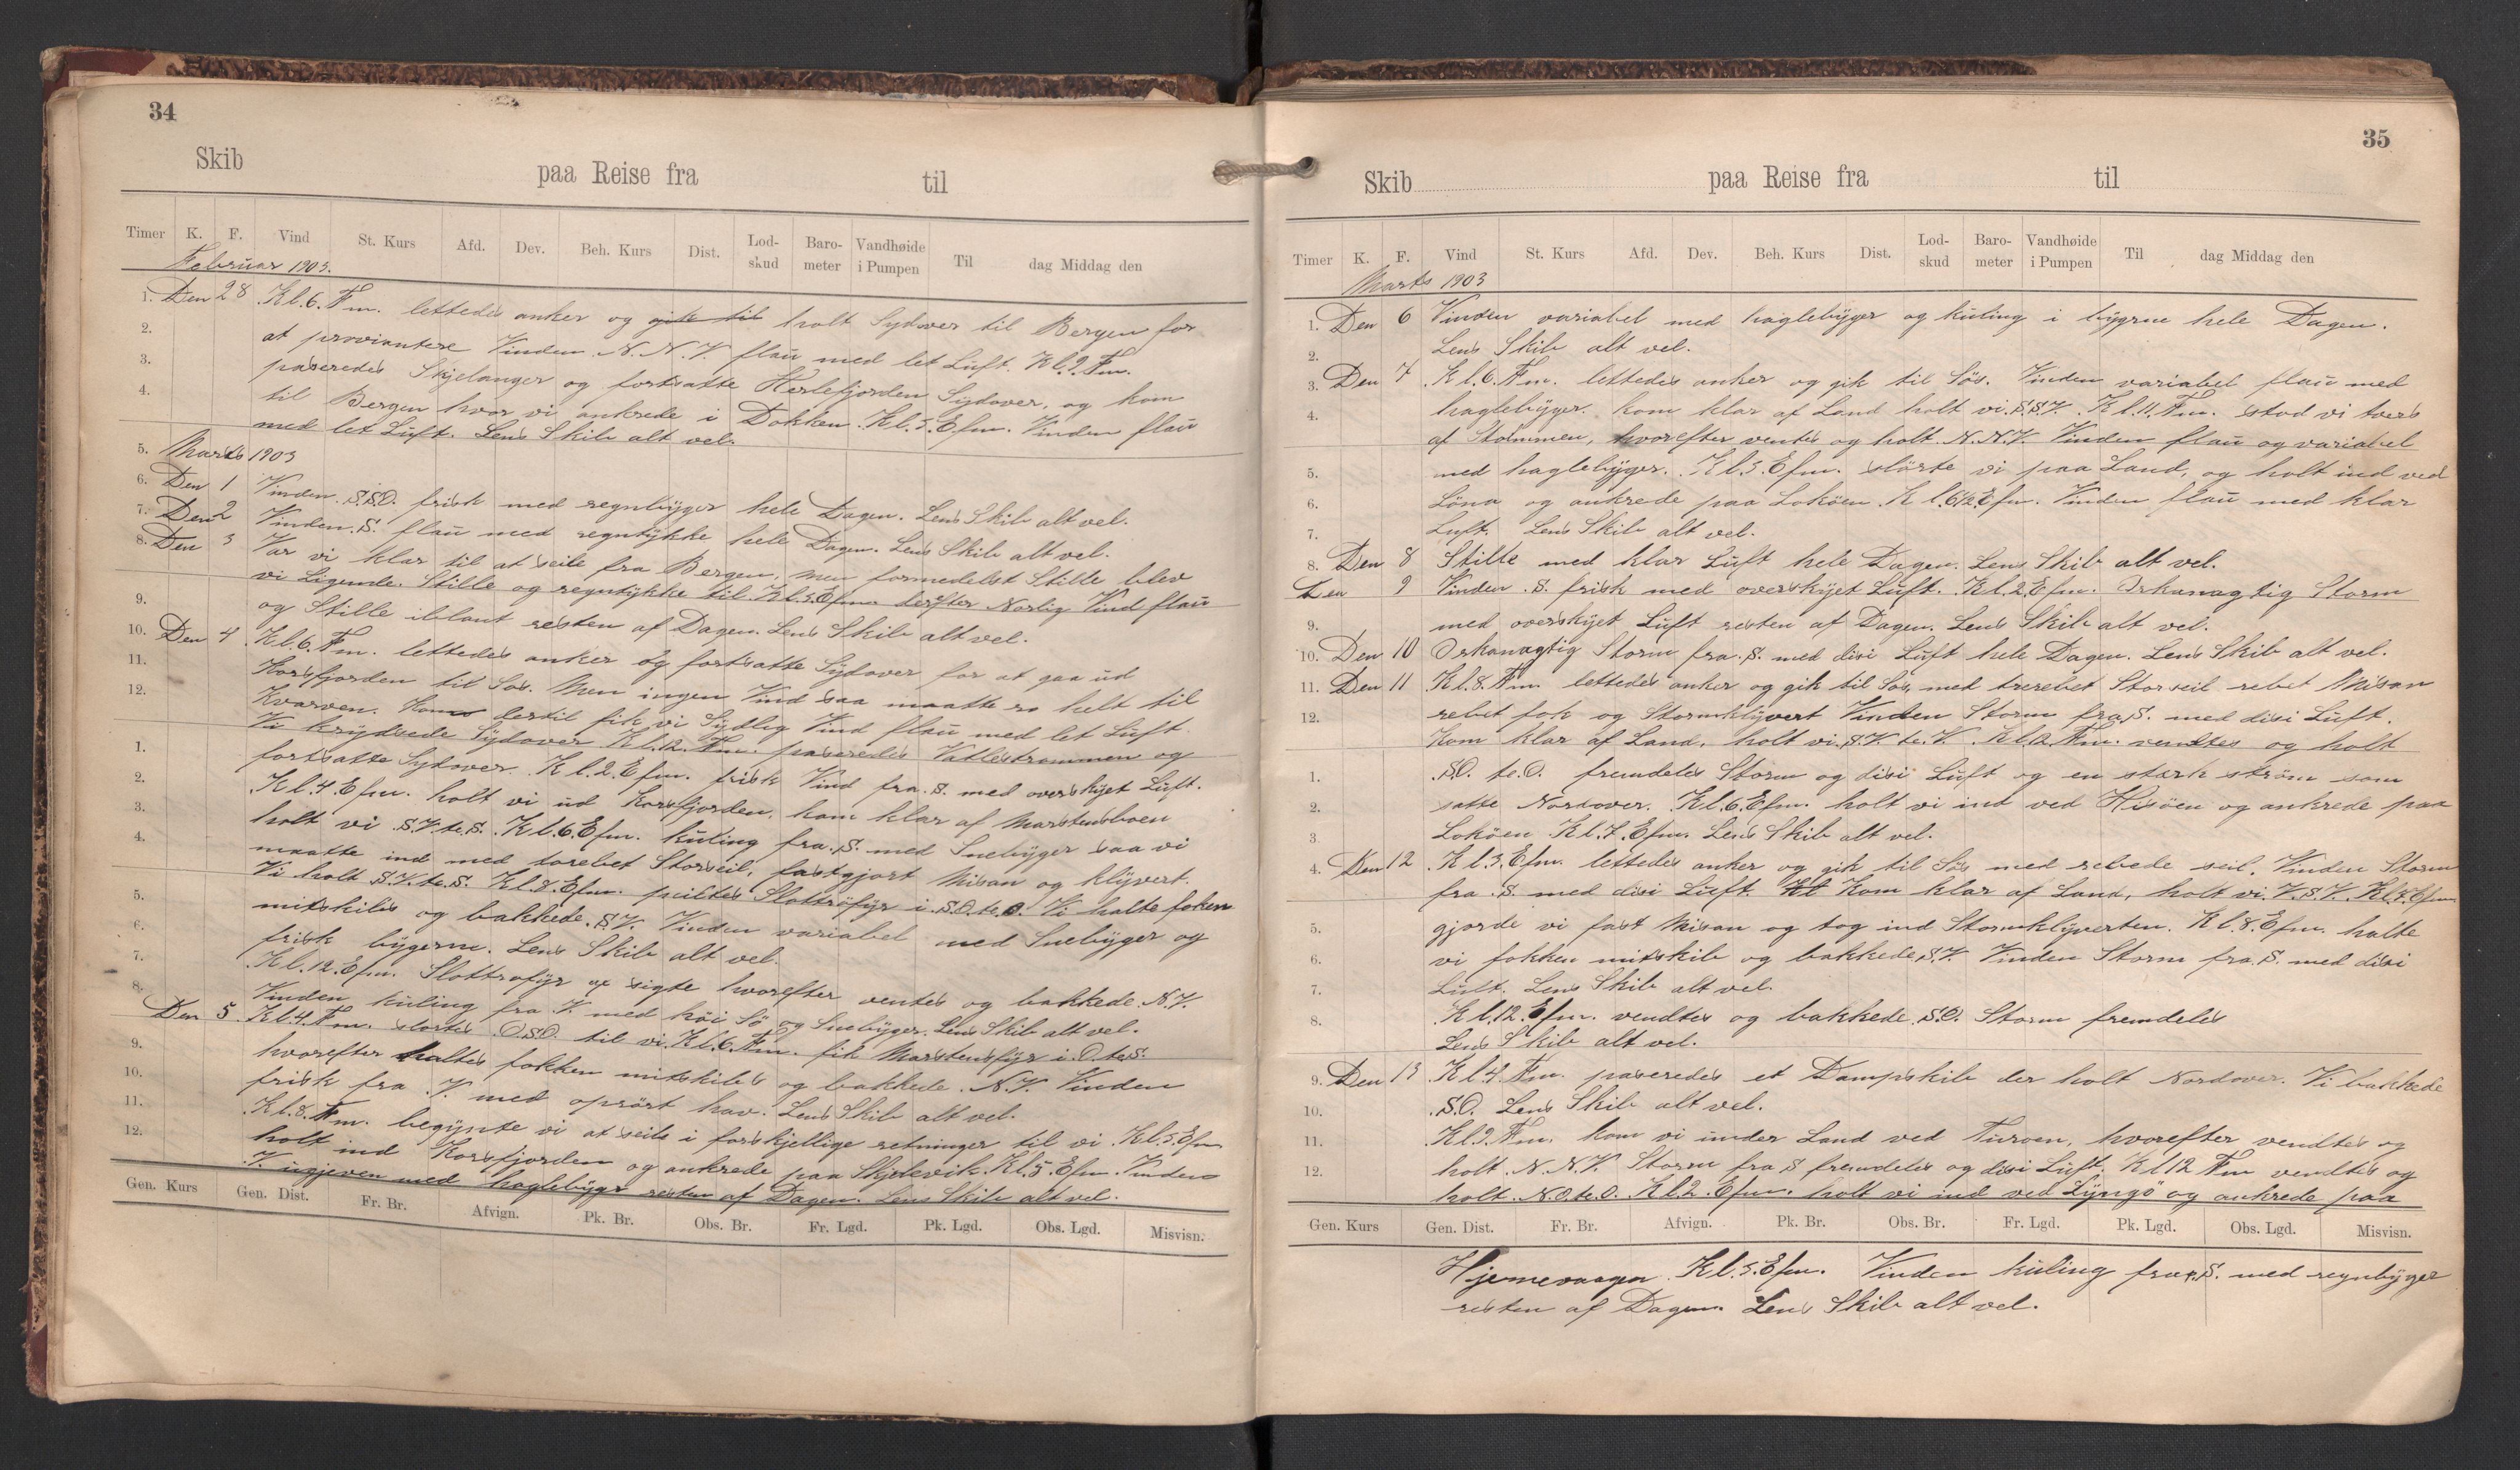 34
Skib paa Reise fra til
Timer K. F. Vind St. Kurs Afd. Dev. Beh. Kurs Dist. Lod-skud Baro-meter Vandhøide i Pumpen Til dag Middag den
Februar 1903.
1. Den 28 Kl. 6. Fm. lettedes anker og gik til holt Sydover til Bergen for
2. at proviantere Vinden N.N.V. flau med let Luft. Kl. 9. Fm.
3. paseredes Skjelanger og fortsatte Herlefjorden Sydover, og kom
4. til Bergen hvor vi ankrede i Dokken. Kl. 5. Efm. Vinden flau
med let Luft. Lens Skib alt vel.
5. Marts 1903
6. Den 1 Vinden S.S.O. frisk med regnbyger hele Dagen. Lens Skib alt vel.
7. Den 2 Vinden S. flau med regntykke hele Dagen. Lens Skib alt vel.
8. Den 3 Var vi klar til at seile fra Bergen, men formedelst Stille blev
vi Ligende. Stille og regntykke til Kl. 3. Efm. derfter Norlig Vind flau
9. og Stille iblant resten af Dagen. Lens Skib alt vel.
10. Den 4 Kl. 6. Fm. lettedes anker og fortsatte Sydover for at gaa ud
11. Korsfjorden til Søs. Men ingen Vind saa maatte ro helt til
12. Kvarven. Kom dertil fik vi Sydlig Vind flau med let Luft.
Vi krydsede Sydover Kl. 12. Fm. paseredes Vatlestrømmen og
1. fortsatte Sydover. Kl. 2. Efm. frisk Vind fra S. med overskyet Luft.
2. Kl. 4 Efm. holt vi ud Korsfjorden, kom klar af Marstensboen
3. holt vi S.V.te.S. Kl. 6. Efm. kuling fra S. med Snebyger saa vi
4. maatte ind med torebet Storseil, fastgjort Misan og klyvert.
Vi holt S.V.te.S. Kl. 8. Efm. peiltes Slottröfyr i S.O.te.O. Vi halte foken
5. mitskibs og bakkede S.V. Vinden variabel med Snebyger og
6. frisk i bygerne. Lens Skib alt vel.
7. Kl. 12. Efm. Slottröfyr af sigte hvorefter ventes og bakkede N.V.
8. Vinden kuling fra V. med høi Sø og Snebyger. Lens Skib alt vel.
Den 5 Kl. 4. Fm. slörtes O.S.O. til vi Kl. 6. Fm. fik Marstensfyr i O.te.S.
9. hvorefter haltes fokken mitskibs og bakkede N.V. Vinden
10. frisk fra V. med oprört hav. Lens Skib alt vel.
11. Kl. 8. Fm. begynte vi at seile i forskjellige retninger til vi Kl. 3. Efm
12. holt ind Korsfjorden og ankrede paa Skjelevik. Kl. 5. Efm. Vinden
V. ugjeven med haglebyge resten af Dagen. Lens Skib alt vel.
Gen. Kurs Gen. Dist. Fr. Br. Afvign. Pk. Br. Obs. Br. Fr. Lgd. Pk. Lgd. Obs. Lgd. Misvisn.
35
Skib paa Reise fra til
Timer K. F. Vind St. Kurs Afd. Dev. Beh. Kurs Dist. Lod-skud Baro-meter Vandhøide i Pumpen Til dag Middag den
Marts 1903
1. Den 6 Vinden variabel med haglebyger og kuling i bygrne hele Dagen.
2. Lens Skib alt vel.
3. Den 7 Kl. 6. Fm. lettedes anker og gik til Søs. Vinden variabel flau med
4. haglebyger. kom klar af Land holt vi S.S.V. Kl. 11. Fm. stod vi tvers
af Stolmmen, hvorefter ventes og holt N.N.V. Vinden flau og variabel
5. med haglebyger. Kl. 3. Efm. slörte vi paa Land, og holt ind ved
6. Löna og ankrede paa Loköen Kl. 6½ Efm. Vinden flau med klar
7. Luft. Lens Skib alt vel.
8. Den 8 Stille med klar Luft hele Dagen. Lens Skib alt vel.
Den 9 Vinden S. frisk med overskyet Luft. Kl. 2. Efm. Orkanagtig Storm
9. med overskyet Luft resten af Dagen. Lens Skib alt vel.
10. Den 10 Orkanagtig Storm fra S. med disi Luft hele Dagen. Lens Skib alt vel.
11. Den 11 Kl. 8. Fm. lettedes anker og gik til Søs, med trerebet Storseil rebet Misan
12. rebet fok og Stormklyvert Vinden Storm fra S. med disi Luft.
Kom klar af Land, holt vi S.V.te.V. Kl. 12. Fm. vendtes og holt
1. S.O.te.O. fremdeles Storm og disi Luft og en stærk ström som
2. satte Nordover. Kl. 6. Efm. holt vi ind ved Hisöen og ankrede paa
3. Loköen Kl. 7. Efm. Lens Skib alt vel.
4. Den 12 Kl. 3. Efm. lettedes anker og gik til Søs med rebede seil. Vinden Storm
fra S. med disi Luft. Kl Kom klar af Land, holt vi V.S.V. Kl. 7. Efm
5. gjorde vi fast Misan og tog ind Stormklyverten. Kl. 8. Efm. halte
6. vi fokken mitskib og bakkede S.V. Vinden Storm fra S. med disi
7. Luft. Lens Skib alt vel.
8. Kl. 12. Efm. vendtes og bakkede S.O. Storm fremdeles
Lens Skib alt vel.
9. Den 13 Kl. 4. Fm. paseredes et Dampskib der holt Nordover. Vi bakkede
10. S.O. Lens Skib alt vel.
11. Kl. 9. Fm. kom vi under Land ved Turoen, hvorefter vendtes og
12. holt N.N.V. Storm fra S fremdeles og disi Luft. Kl. 12 Fm vendtes og
holt N.O.te.O. Kl. 2. Efm. holt vi ind ved Lyngö og ankrede paa
Gen. Kurs Gen. Dist. Fr. Br. Afvign. Pk. Br. Obs. Br. Fr. Lgd. Pk. Lgd. Obs. Lgd. Misvisn.
Hjemevaagen Kl. 3. Efm. Vinden kuling fra S. med regnbyger
resten af Dagen. Lens Skib alt vel.